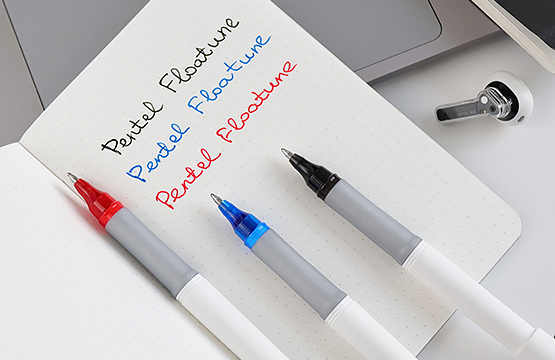 Pentel Floatune
Pentel Floatune
Pentel Floatune